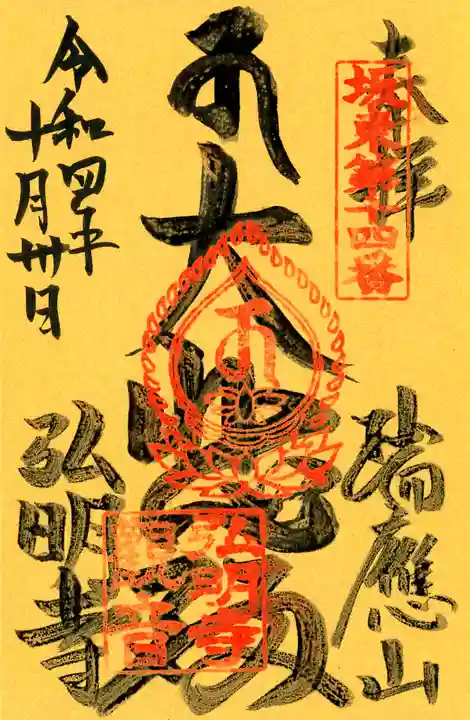 奉拝
坂東第十四番
瑞應山
大悲
弘明寺
觀音
令和四年
十月卅日
弘明寺